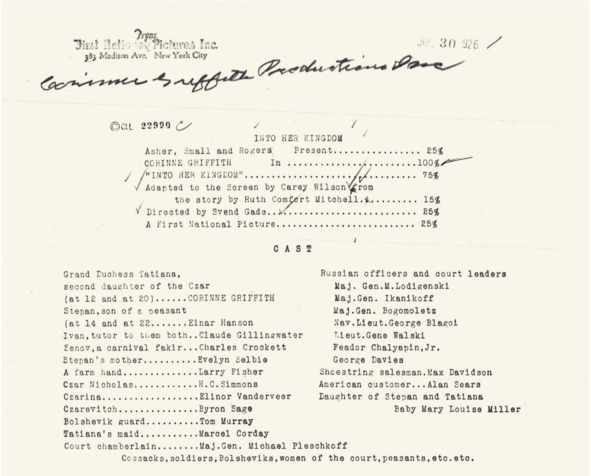 From
First National Pictures Inc.
383 Madison Ave. New York City
JUL 30 1926
Corinne Griffith Productions Inc
©CIL 22990 C
INTO HER KINGDOM
Asher, Small and Rogers Present............... 25%
CORINNE GRIFFITH In ......................100%
"INTO HER KINGDOM"........................... 75%
Adapted to the Screen by Carey Wilson from
the story by Ruth Comfort Mitchell........... 15%
Directed by Svend Gade....................... 25%
A First National Picture..................... 25%
C A S T
Grand Duchess Tatiana,
second daughter of the Czar
(at 12 and at 20)......CORINNE GRIFFITH
Stepan,son of a peasant
(at 14 and at 22.......Einar Hanson
Ivan,tutor to them both..Claude Gillingwater
Senov,a carnival fakir...Charles Crockett
Stepan's mother..........Evelyn Selbie
A farm hand..............Larry Fisher
Czar Nicholas............H.C.Simmons
Czarina..................Elinor Vanderveer
Czarevitch...............Byron Sage
Bolshevik guard..........Tom Murray
Tatiana's maid...........Marcel Corday
Court chamberlain........Maj.Gen. Michael Pleschkoff
Russian officers and court leaders
Maj. Gen.M.Lodigenski
Maj.Gen. Ikanikoff
Maj.Gen. Bogomoletz
Nav.Lieut.George Blagoi
Lieut.Gene Walski
Feador Chalyapin,Jr.
George Davies
Shoestring salesman.Max Davidson
American customer...Alan Sears
Daughter of Stepan and Tatiana
Baby Mary Louise Miller
Cossacks,soldiers,Bolsheviks,women of the court,peasants,etc.etc.